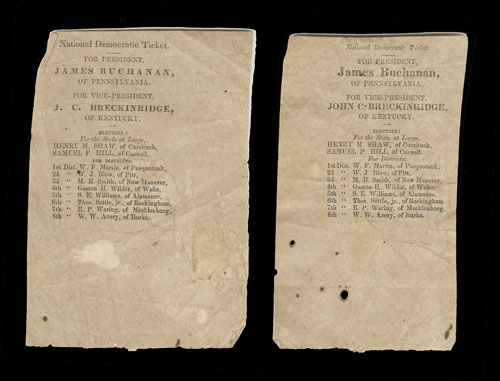 National Democratic Ticket.
FOR PRESIDENT,
JAMES BUCHANAN,
OF PENNSYLVANIA.
FOR VICE-PRESIDENT,
J. C. BRECKINRIDGE,
OF KENTUCKY.
ELECTORS:
For the State at Large,
HENRY M. SHAW, of Currituck,
SAMUEL P. HILL, of Caswell.
FOR DISTRICTS.
1st Dist. W. F. Martin, of Pasquotank,
2d " W. J. Blow, of Pitt,
3d " M. B. Smith, of New Hanover,
4th " Gaston H. Wilder, of Wake,
5th " S. E. Williams, of Alamance,
6th " Thos. Settle, jr., of Rockingham,
7th " R. P. Waring, of Mecklenburg,
8th " W. W. Avery, of Burke.
National Democratic Ticket.
FOR PRESIDENT,
James Buchanan,
OF PENNSYLVANIA.
FOR VICE-PRESIDENT,
JOHN C. BRECKINRIDGE,
OF KENTUCKY.
ELECTORS:
For the State at Large,
HENRY M. SHAW, of Currituck,
SAMUEL P. HILL, of Caswell.
For Districts.
1st Dist. W. F. Martin, of Pasquotank,
2d " W. J. Blow, of Pitt,
3d " M. B. Smith, of New Hanover,
4th " Gaston H. Wilder, of Wake,
5th " S. E. Williams, of Alamance,
6th " Thos. Settle, jr., of Rockingham
7th " R. P. Waring, of Mecklenburg,
8th " W. W. Avery, of Burke.